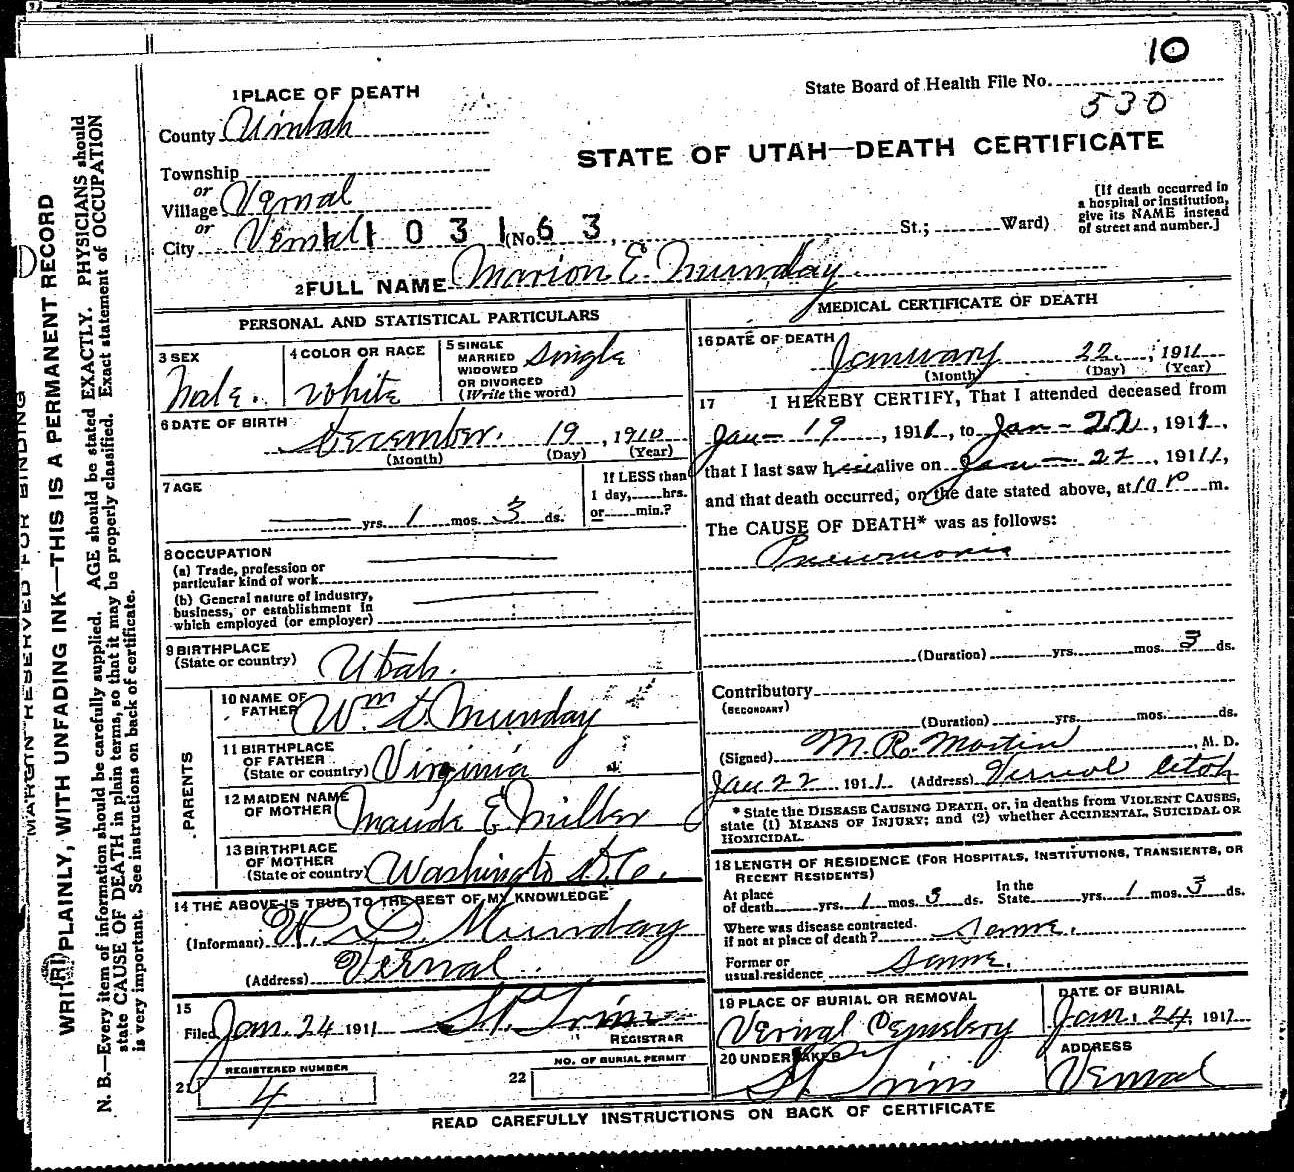 10
State Board of Health File No.
530
1 PLACE OF DEATH
County Uintah
STATE OF UTAH—DEATH CERTIFICATE
Township
or
Village Vernal
or
City Vernal 11 0 3 1 (No. 6 3, St.; Ward)
[If death occurred in
a hospital or institution,
give its NAME instead
of street and number.]
2 FULL NAME Marion E. Munday
PERSONAL AND STATISTICAL PARTICULARS
3 SEX
Male.
4 COLOR OR RACE
White
5 SINGLE
MARRIED
WIDOWED
OR DIVORCED
(Write the word)
Single
6 DATE OF BIRTH
December. 19, 1910
(Month) (Day) (Year)
7 AGE
yrs. 1 mos. 3 ds.
If LESS than
1 day, hrs.
or min.?
8 OCCUPATION
(a) Trade, profession or
particular kind of work
(b) General nature of industry,
business, or establishment in
which employed (or employer)
9 BIRTHPLACE
(State or country) Utah.
PARENTS
10 NAME OF
FATHER Wm D. Munday
11 BIRTHPLACE
OF FATHER
(State or country) Virginia
12 MAIDEN NAME
OF MOTHER Maude E Miller
13 BIRTHPLACE
OF MOTHER
(State or country) Washingto D.C.
14 THE ABOVE IS TRUE TO THE BEST OF MY KNOWLEDGE
(Informant) W. D. Munday
(Address) Vernal
15
Filed Jan. 24 1911
REGISTRAR
REGISTERED NUMBER
21 4
NO. OF BURIAL PERMIT
22
MEDICAL CERTIFICATE OF DEATH
16 DATE OF DEATH
January 22, 1911
(Month) (Day) (Year)
17 I HEREBY CERTIFY, That I attended deceased from
Jan - 19, 1911, to Jan - 22, 1911,
that I last saw him alive on Jan - 22, 1911,
and that death occurred, on the date stated above, at 10 P m.
The CAUSE OF DEATH* was as follows:
Pneumonia
(Duration) yrs. mos. 3 ds.
Contributory
(SECONDARY)
(Duration) yrs. mos. ds.
(Signed) M. R. Martin, M. D.
Jan 22 1911. (Address) Vernal Utah
* State the DISEASE CAUSING DEATH, or, in deaths from VIOLENT CAUSES,
state (1) MEANS OF INJURY; and (2) whether ACCIDENTAL, SUICIDAL OR
HOMICIDAL.
18 LENGTH OF RESIDENCE (FOR HOSPITALS, INSTITUTIONS, TRANSIENTS, OR
RECENT RESIDENTS)
At place
of death yrs. 1 mos. 3 ds.
In the
State yrs. 1 mos. 3 ds.
Where was disease contracted.
if not at place of death? Same.
Former or
usual residence Same.
19 PLACE OF BURIAL OR REMOVAL
Vernal Cemetery
DATE OF BURIAL
Jan. 24, 1911
20 UNDERTAKER
ADDRESS
Vernal
READ CAREFULLY INSTRUCTIONS ON BACK OF CERTIFICATE
MARGIN RESERVED FOR BINDING
WRITE PLAINLY, WITH UNFADING INK—THIS IS A PERMANENT RECORD
N. B.—Every item of information should be carefully supplied. AGE should be stated EXACTLY. PHYSICIANS should
state CAUSE OF DEATH in plain terms, so that it may be properly classified. Exact statement of OCCUPATION
is very important. See instructions on back of certificate.